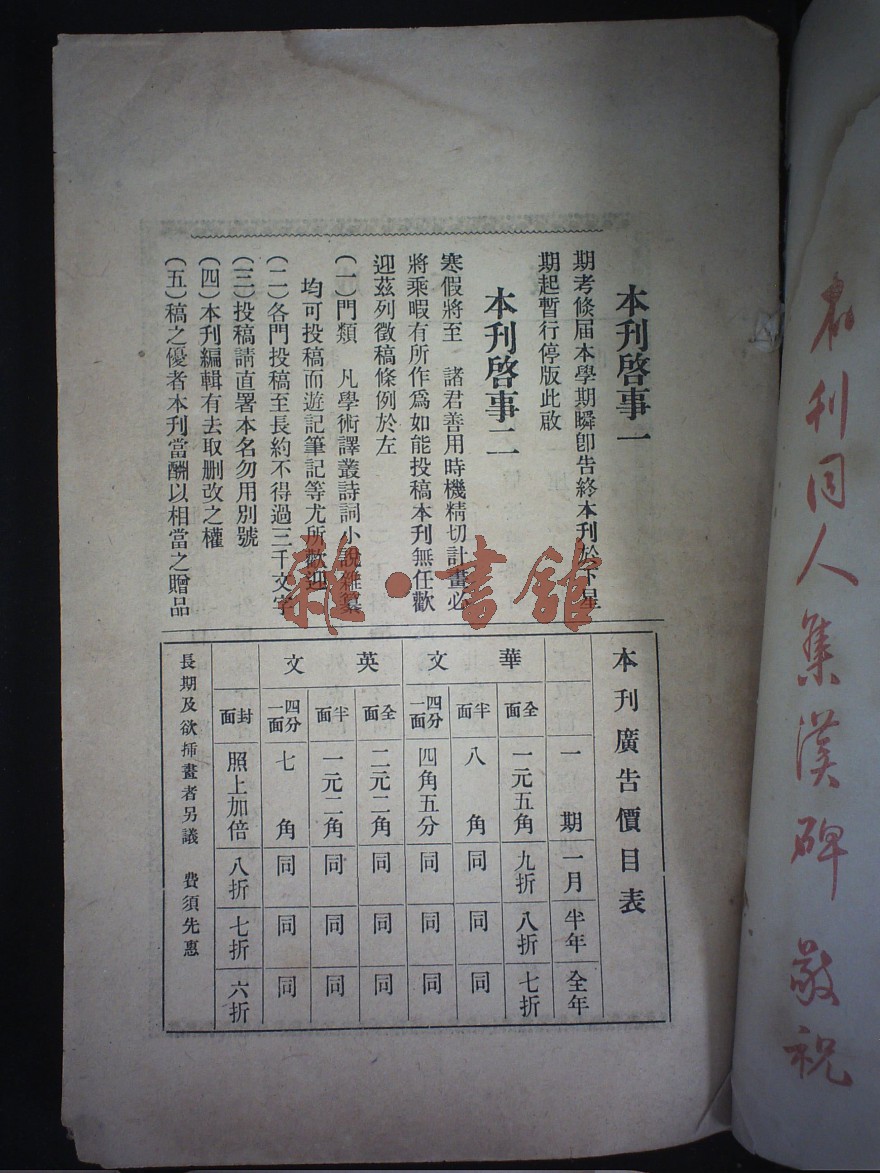 本刊啓事一
期考倐屆本學期瞬卽告終本刊於下星
期起暫行停版此啟
本刊啓事二
寒假將至　諸君善用時機精切計畫必
將乘暇有所作爲如能投稿本刊無任歡
迎茲列徵稿條例於左
（一）門類　凡學術譯叢詩詞小說雜纂
均可投稿而遊記筆記等尤所歡迎
（二）各門投稿至長約不得過三千文字
（三）投稿請直署本名勿用別號
（四）本刊編輯有去取刪改之權
（五）稿之優者本刊當酬以相當之贈品
本刊廣告價目表
一期　一月　半年　全年
華文
全面　一元五角　九折　八折　七折
半面　八角　同　同　同
四分一面　四角五分　同　同　同
英文
全面　二元二角　同　同　同
半面　一元二角　同　同　同
四分一面　七角　同　同　同
封面　照上加倍　八折　七折　六折
長期及欲揷畫者另議　費須先惠
刊同人集漢碑敬祝
雜·書館